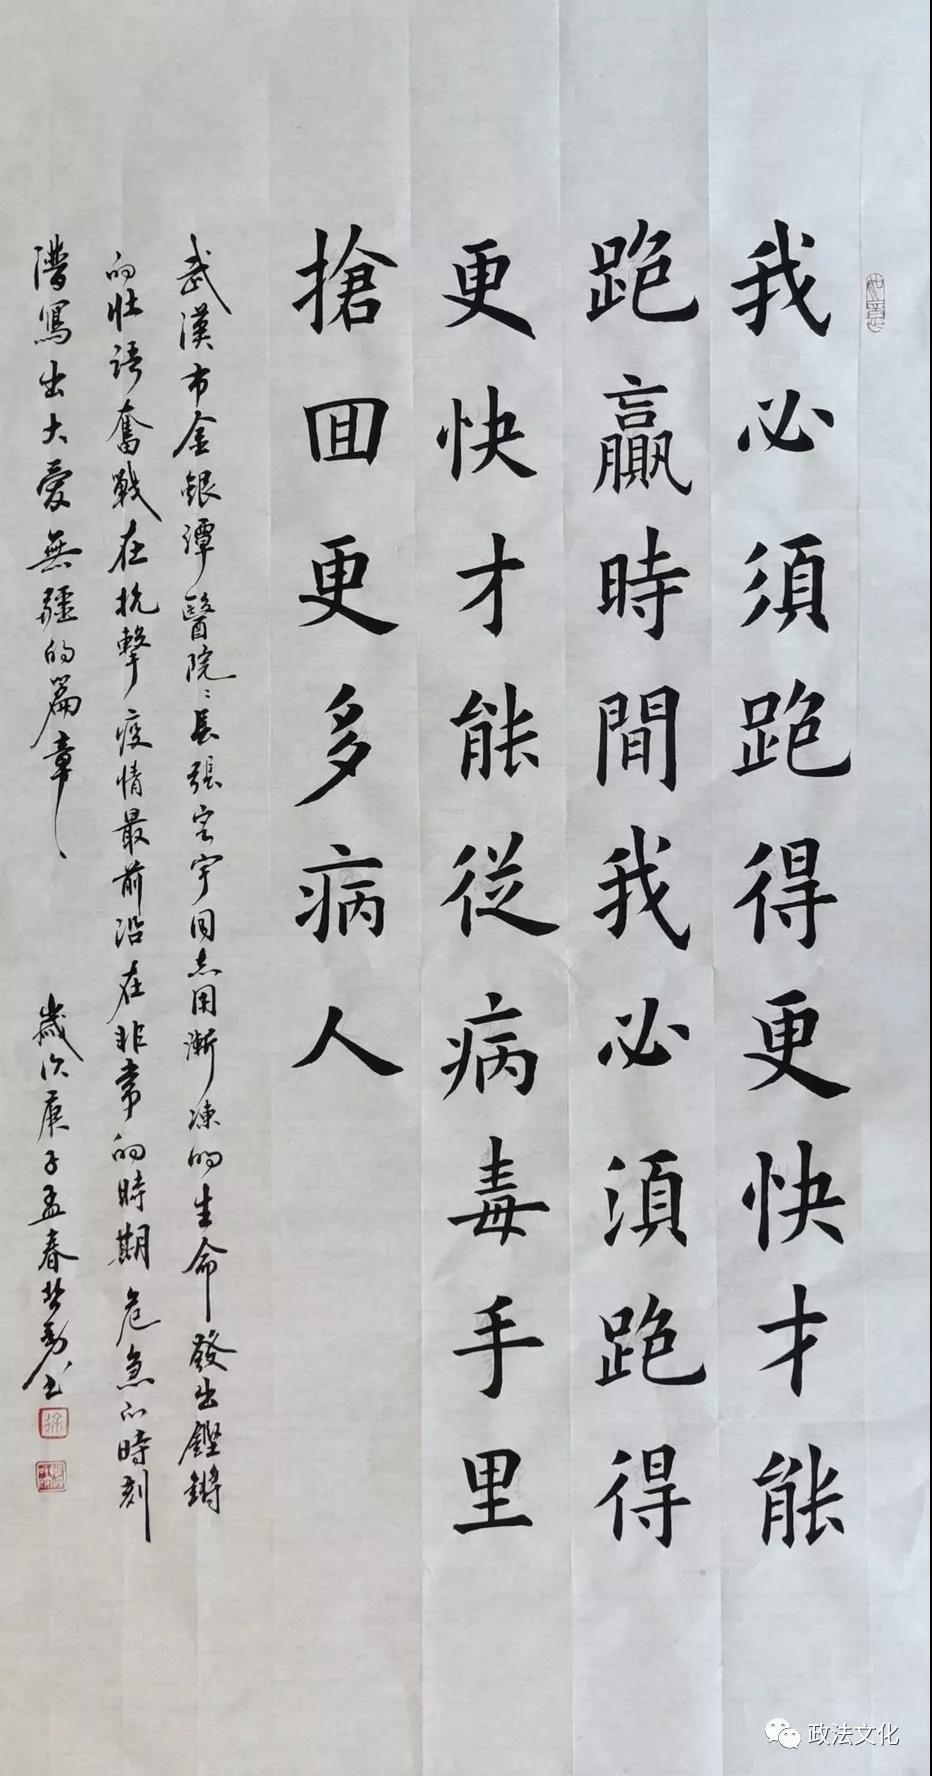 如意
我必須跑得更快才能
跑贏時間我必須跑得
更快才能從病毒手里
搶囬更多病人
武漢市金銀潭醫院〻長張定宇同志用漸凍的生命發出鏗鏘
的壮語奮戰在抗擊疫情最前沿在非常的時期危急的時刻
譜寫出大愛無疆的篇章 歲次庚子孟春 書
徐
政法文化